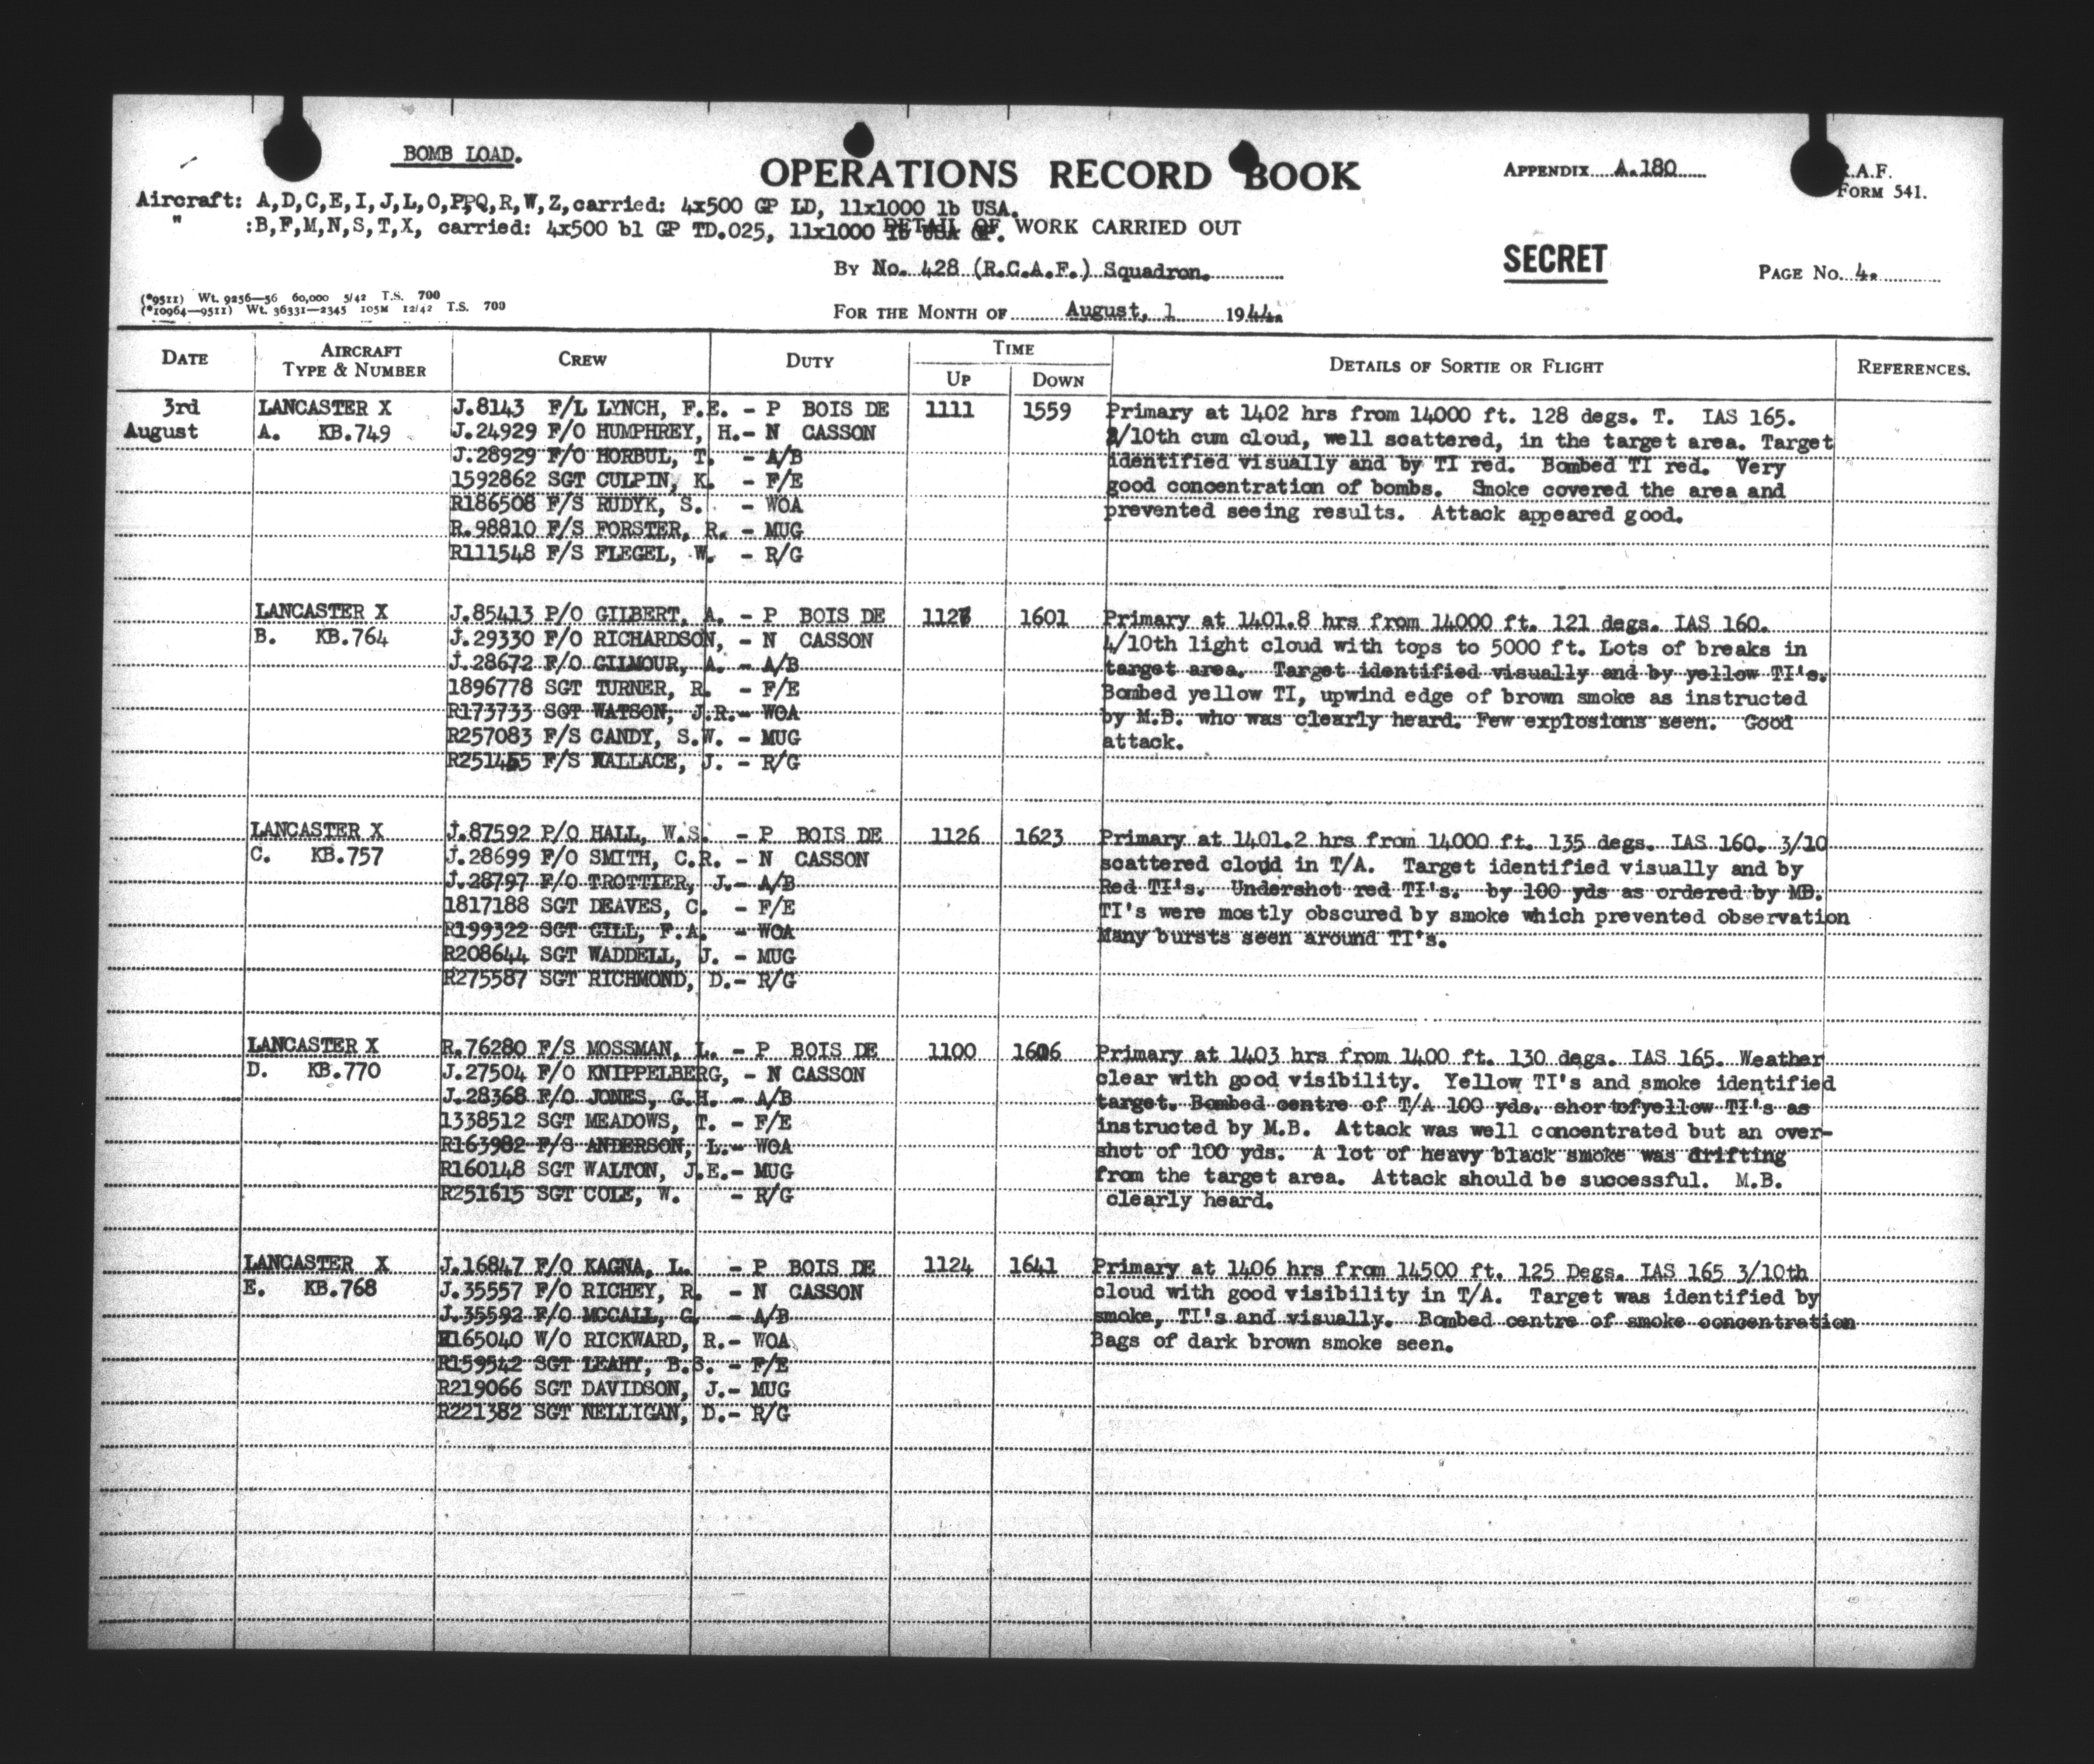 BOMB LOAD.
OPERATIONS RECORD BOOK
APPENDIX A.180
R.A.F. FORM 541.
Aircraft: A,D,C,E,I,J,L,O,P,Q,R,W,Z,carried: 4x500 GP LD, 11x1000 lb USA.
" :B,F,M,N,S,T,X, carried: 4x500 bl GP TD.025, 11x1000 lb USA GP.
DETAIL OF WORK CARRIED OUT
SECRET
BY No. 428 (R.C.A.F.) Squadron.
PAGE NO. 4.
(*9511) Wt. 9256—56 60,000 5/42 T.S. 700
(*10964—9511) Wt. 36331—2345 105M 12/42 T.S. 700
FOR THE MONTH OF August, 1 1944.
DATE AIRCRAFT TYPE & NUMBER CREW DUTY TIME UP DOWN DETAILS OF SORTIE OR FLIGHT REFERENCES.
3rd LANCASTER X J.8143 F/L LYNCH, F.E. - P BOIS DE 1111 1559 Primary at 1402 hrs from 14000 ft. 128 degs. T. IAS 165.
August A. KB.749 J.24929 F/O HUMPHREY, H.- N CASSON /10th cum cloud, well scattered, in the target area. Target
J.28929 F/O HORBUL, T. - A/B identified visually and by TI red. Bombed TI red. Very
1592862 SGT CULPIN, K. - F/E good concentration of bombs. Smoke covered the area and
R186508 F/S RUDYK, S. - WOA prevented seeing results. Attack appeared good.
R.98810 F/S FORSTER, R. - MUG
R111548 F/S FLEGEL, W. - R/G
LANCASTER X J.85413 P/O GILBERT, A. - P BOIS DE 1601 Primary at 1401.8 hrs from 14000 ft. 121 degs. IAS 160.
B. KB.764 J.29330 F/O RICHARDSON, - N CASSON 4/10th light cloud with tops to 5000 ft. Lots of breaks in
J.28672 F/O GILMOUR, A. - A/B target area. Target identified visually and by yellow TI's.
1896778 SGT TURNER, R. - F/E Bombed yellow TI, upwind edge of brown smoke as instructed
R173733 SGT WATSON, J.R.- WOA by M.B. who was clearly heard. Few explosions seen. Good
R257083 F/S CANDY, S.W. - MUG attack.
F/S WALLACE, J. - R/G
LANCASTER X J.87592 P/O HALL, W.S. - P BOIS DE 1126 1623 Primary at 1401.2 hrs from 14000 ft. 135 degs. IAS 160. 3/10
C. KB.757 J.28699 F/O SMITH, C.R. - N CASSON scattered cloud in T/A. Target identified visually and by
J.28797 F/O TROTTIER, J.- A/B Red TI's. Undershot red TI's. by 100 yds as ordered by MB.
1817188 SGT DEAVES, C. - F/E TI's were mostly obscured by smoke which prevented observation
R199322 SGT GILL, F.A. - WOA Many bursts seen around TI's.
R208644 SGT WADDELL, J. - MUG
R275587 SGT RICHMOND, D.- R/G
LANCASTER X R.76280 F/S MOSSMAN, L. - P BOIS DE 1100 1606 Primary at 1403 hrs from 1400 ft. 130 degs. IAS 165. Weather
D. KB.770 J.27504 F/O KNIPPELBERG, - N CASSON clear with good visibility. Yellow TI's and smoke identified
J.28368 F/O JONES, G.H. - A/B target. Bombed centre of T/A 100 yds. shortofyellow TI's as
1338512 SGT MEADOWS, T. - F/E instructed by M.B. Attack was well concentrated but an over-
R163982 F/S ANDERSON, L.- WOA shot of 100 yds. A lot of heavy black smoke was drifting
R160148 SGT WALTON, J.E.- MUG from the target area. Attack should be successful. M.B.
R251615 SGT COLE, W. - R/G clearly heard.
LANCASTER X J.16847 F/O KAGNA, L. - P BOIS DE 1124 1641 Primary at 1406 hrs from 14500 ft. 125 Degs. IAS 165 3/10th
E. KB.768 J.35557 F/O RICHEY, R. - N CASSON cloud with good visibility in T/A. Target was identified by
J.35592 F/O MCCALL, G. - A/B smoke, TI's and visually. Bombed centre of smoke concentration
R165040 W/O RICKWARD, R.- WOA Bags of dark brown smoke seen.
R159542 SGT LEAHY, B.S. - F/E
R219066 SGT DAVIDSON, J.- MUG
R221382 SGT NELLIGAN, D.- R/G